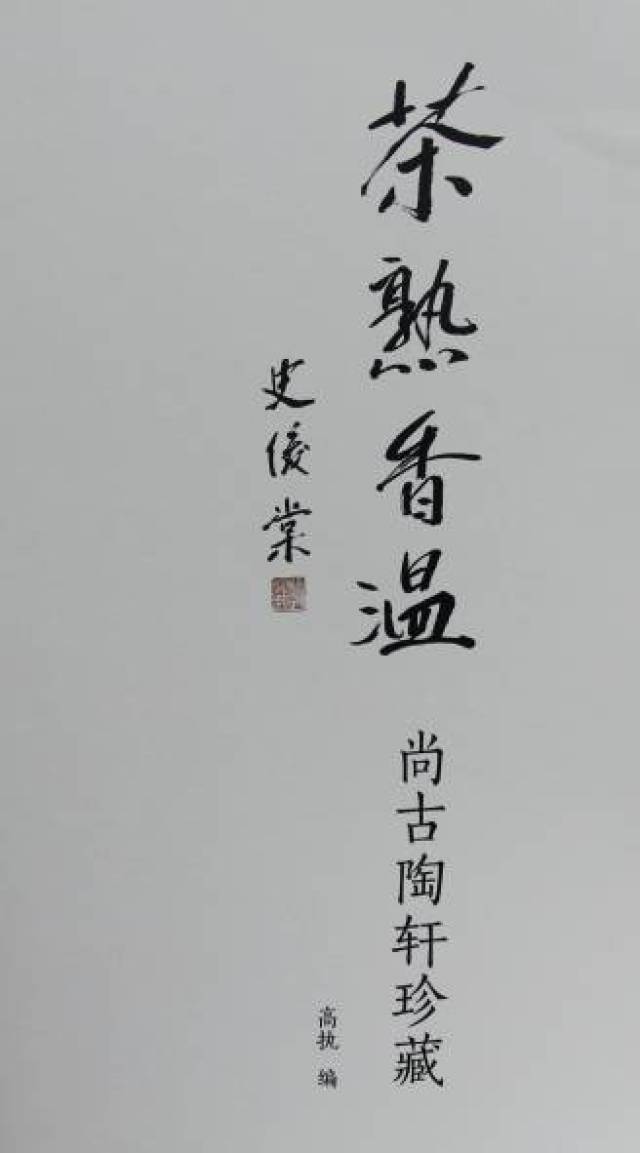 茶熟香温
史俊棠
尚古陶轩珍藏
高执 编